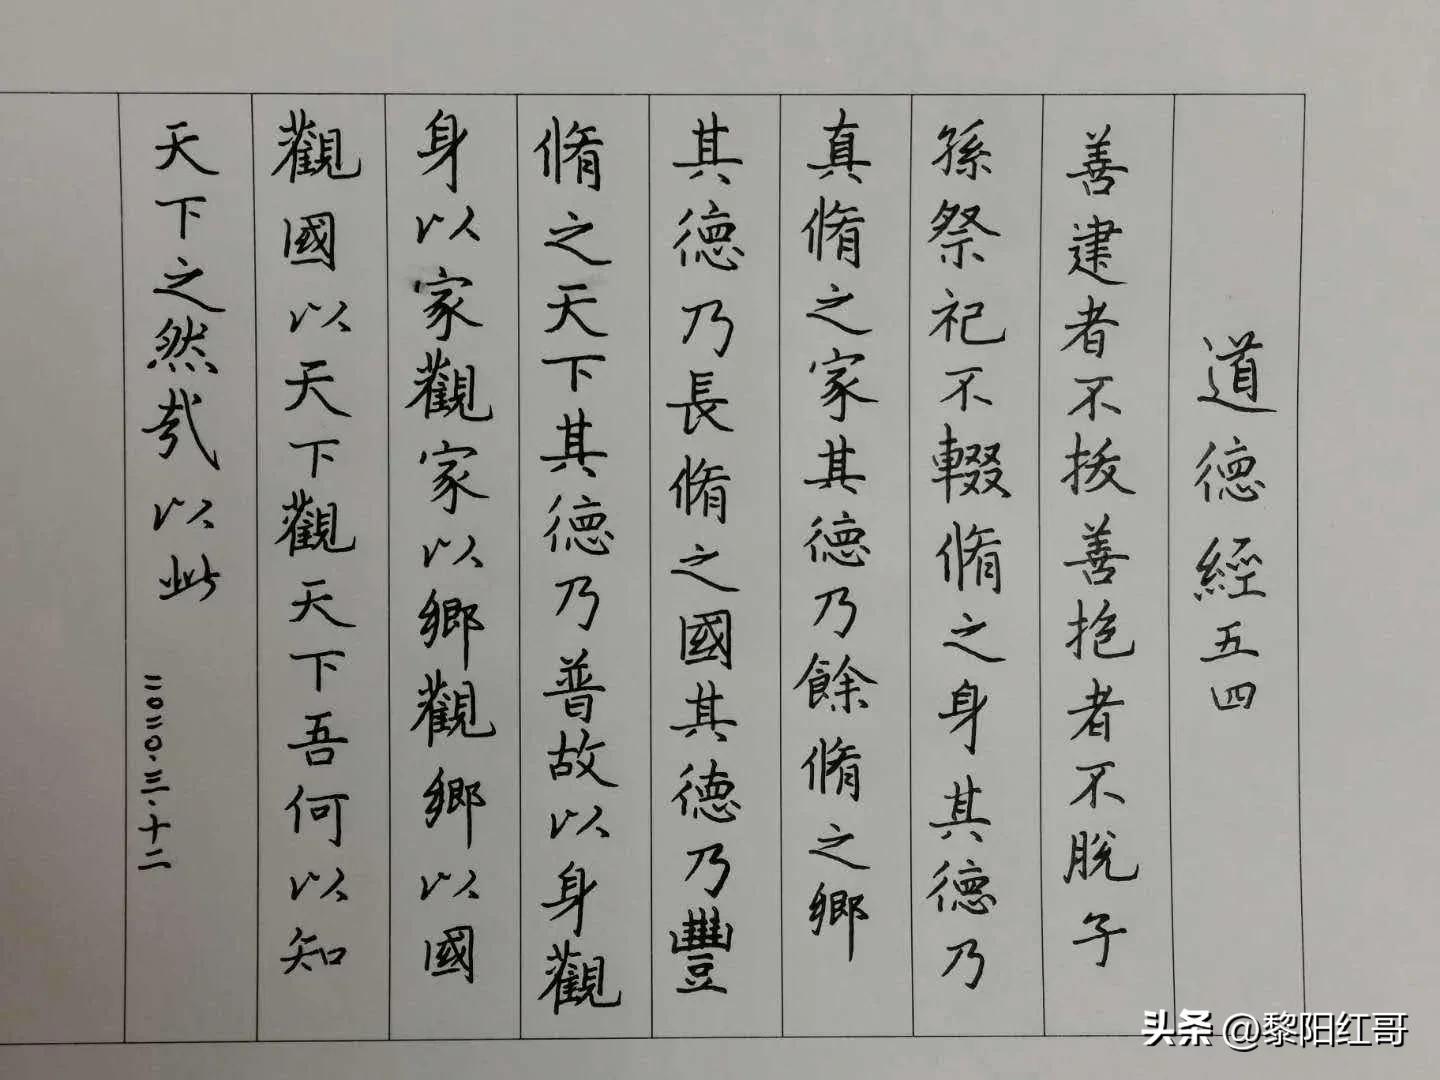 道德經五四
善建者不拔善抱者不脫子
孫祭祀不輟脩之身其德乃
真脩之家其德乃餘脩之鄉
其德乃長脩之國其德乃豐
脩之天下其德乃普故以身觀
身以家觀家以鄉觀鄉以國
觀國以天下觀天下吾何以知
天下之然哉以此
二〇二〇.三.十二
头条 @黎阳红哥